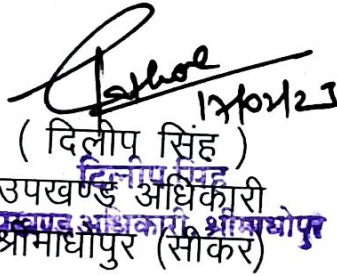 17/02/23
( दिलीप सिंह )
दिलीप सिंह
उपखण्ड अधिकारी
उपखण्ड अधिकारी, श्रीमाधोपुर
श्रीमाधोपुर (सीकर)